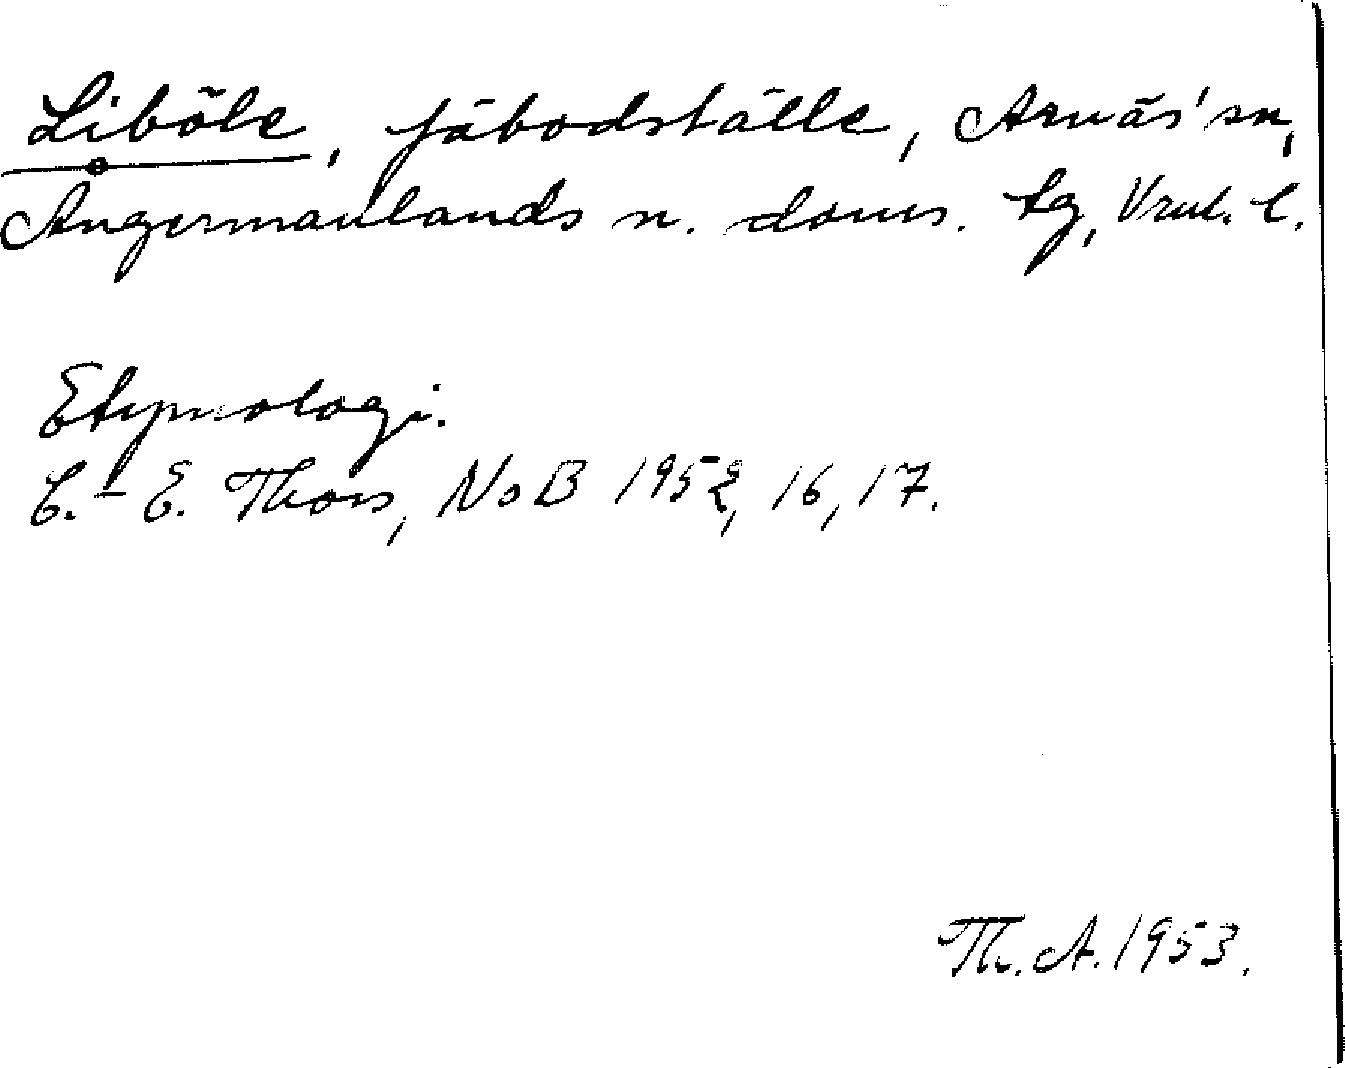 Liböle, fäbodställe, Arnäs' sn,
Ångermanlands n. doms. tg, Vrnl. l.
Etymologi.
C.-E. Thors, NoB 1952, 16, 17.
Th. A. 1953.